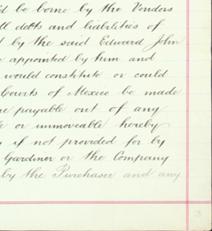 d be borne by the Vendors
ll debts and liabilities of
d by the said Edward John
e appointed by him and
would constitute or could
Courts of Mexico be made
re payable out of any
le or immoveable hereby
y if not provided for by
Gardiner or the Company
by the Purchaser and any